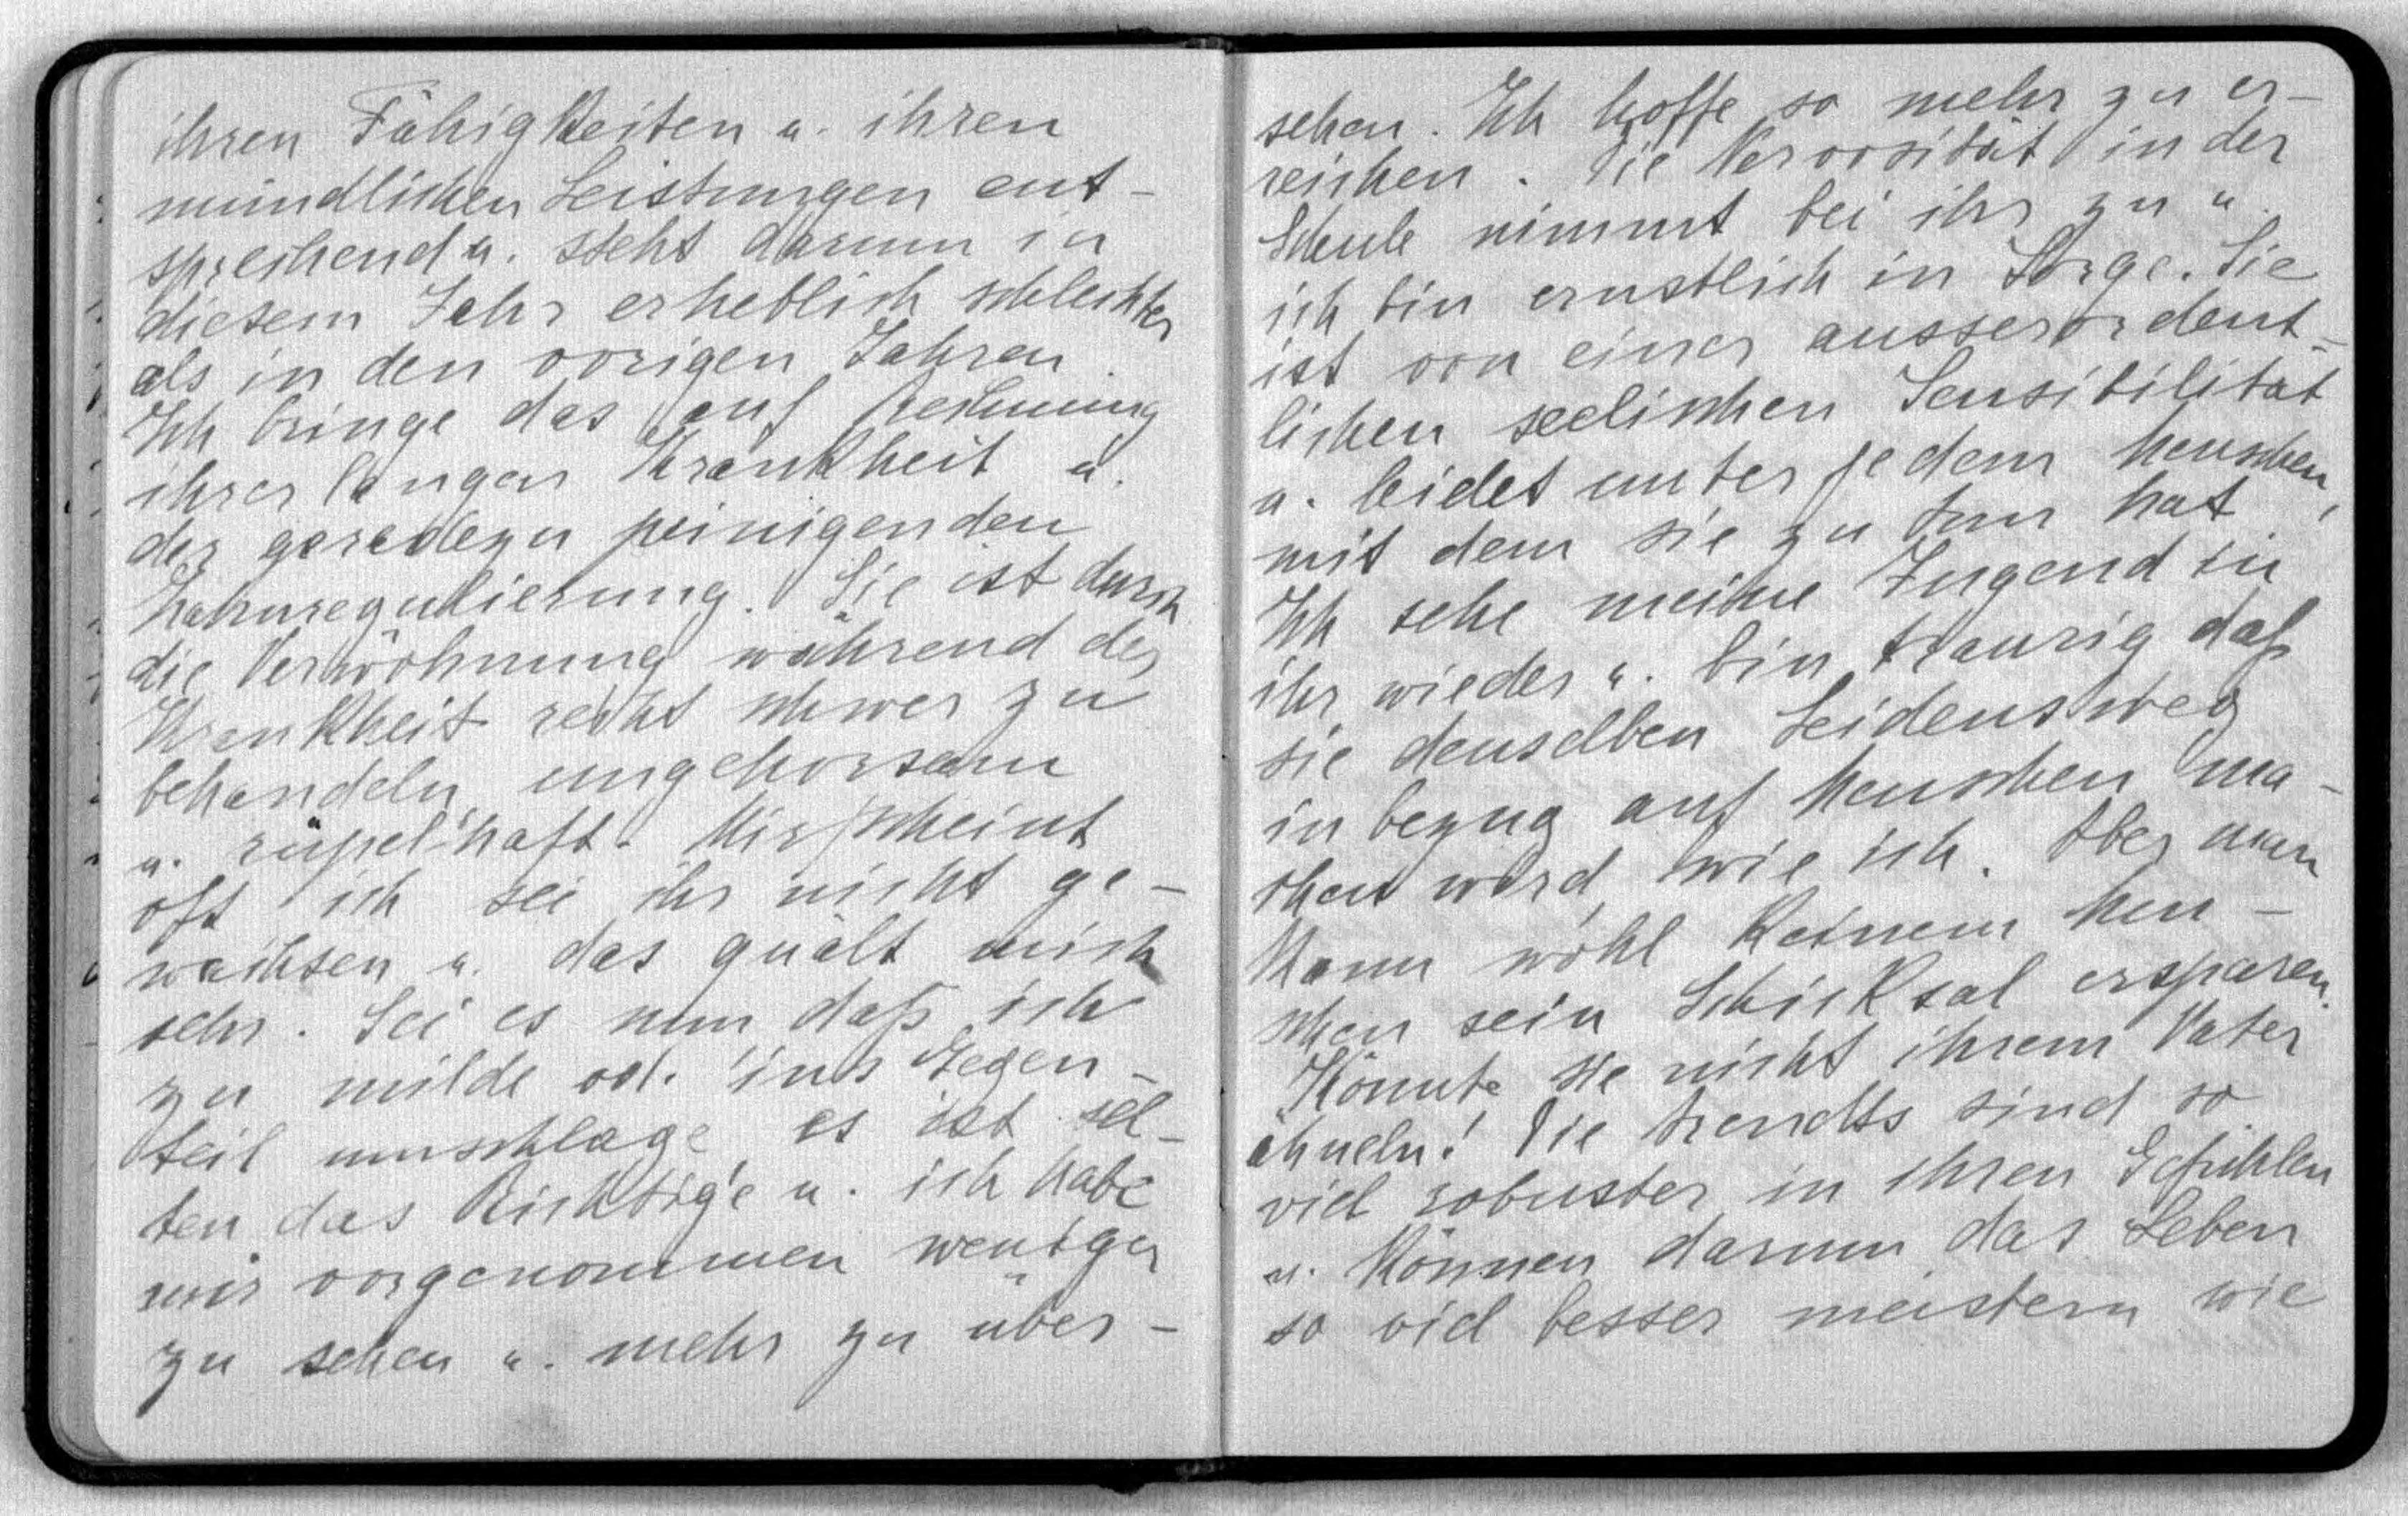 ihren Fähigkeiten u. ihren
mündlichen Leistungen ent-
sprechend u. steht darum in
diesem Jahr erheblich schlechter
als in den vorigen Jahren.
Ich bringe das auf Rechnung
ihrer langen Krankheit u.
der geradezu peinigenden
Zahnregulierung. Sie ist durch
die Verwöhnung während der
Krankheit recht schwer zu
behandeln, ungehorsam
u. rüpelhaft. Mir scheint
oft ich sei ihr nicht ge-
wachsen u. das quält mich
sehr. Sei es nun daß ich
zu milde od. ins Gegen-
teil umschlage, es ist sel-
ten das Richtige u. ich habe
mir vorgenommen weniger
zu sehen u. mehr zu über-
sehen. Ich hoffe so mehr zu er-
reichen. Die Nervosität in der
Schule nimmt bei ihr zu u.
ich bin ernstlich in Sorge. Sie
ist von einer ausserordent-
lichen seelischen Sensibilität
u. leidet unter jedem Menschen,
mit dem sie zu tun hat.
Ich sehe meine Jugend in
ihr wieder u. bin traurig daß
sie denselben Leidensweg
in bezug auf Menschen ma-
chen wird, wie ich. Aber man
kann wohl keinem Men-
schen sein Schicksal ersparen.
Könnte sie nicht ihrem Vater
ähneln! Die sind so
viel robuster in ihren Gefühlen
u. können darum das Leben
so viel besser meistern wie